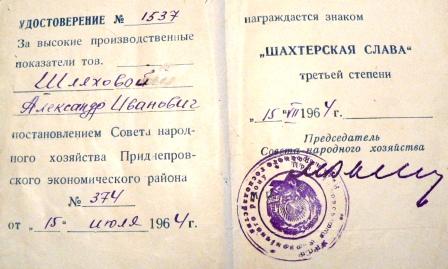 УДОСТОВЕРЕНИЕ № 1537
За высокие производственные
показатели тов.
Шляховой
Александр Иванович
постановлением Совета народ-
ного хозяйства Приднепров-
ского экономического района
№ 374
от „15" июля 1964 г.
награждается знаком
„ШАХТЕРСКАЯ СЛАВА"
третьей степени
„15" VII 1964 г.
Председатель
Совета народного хозяйства